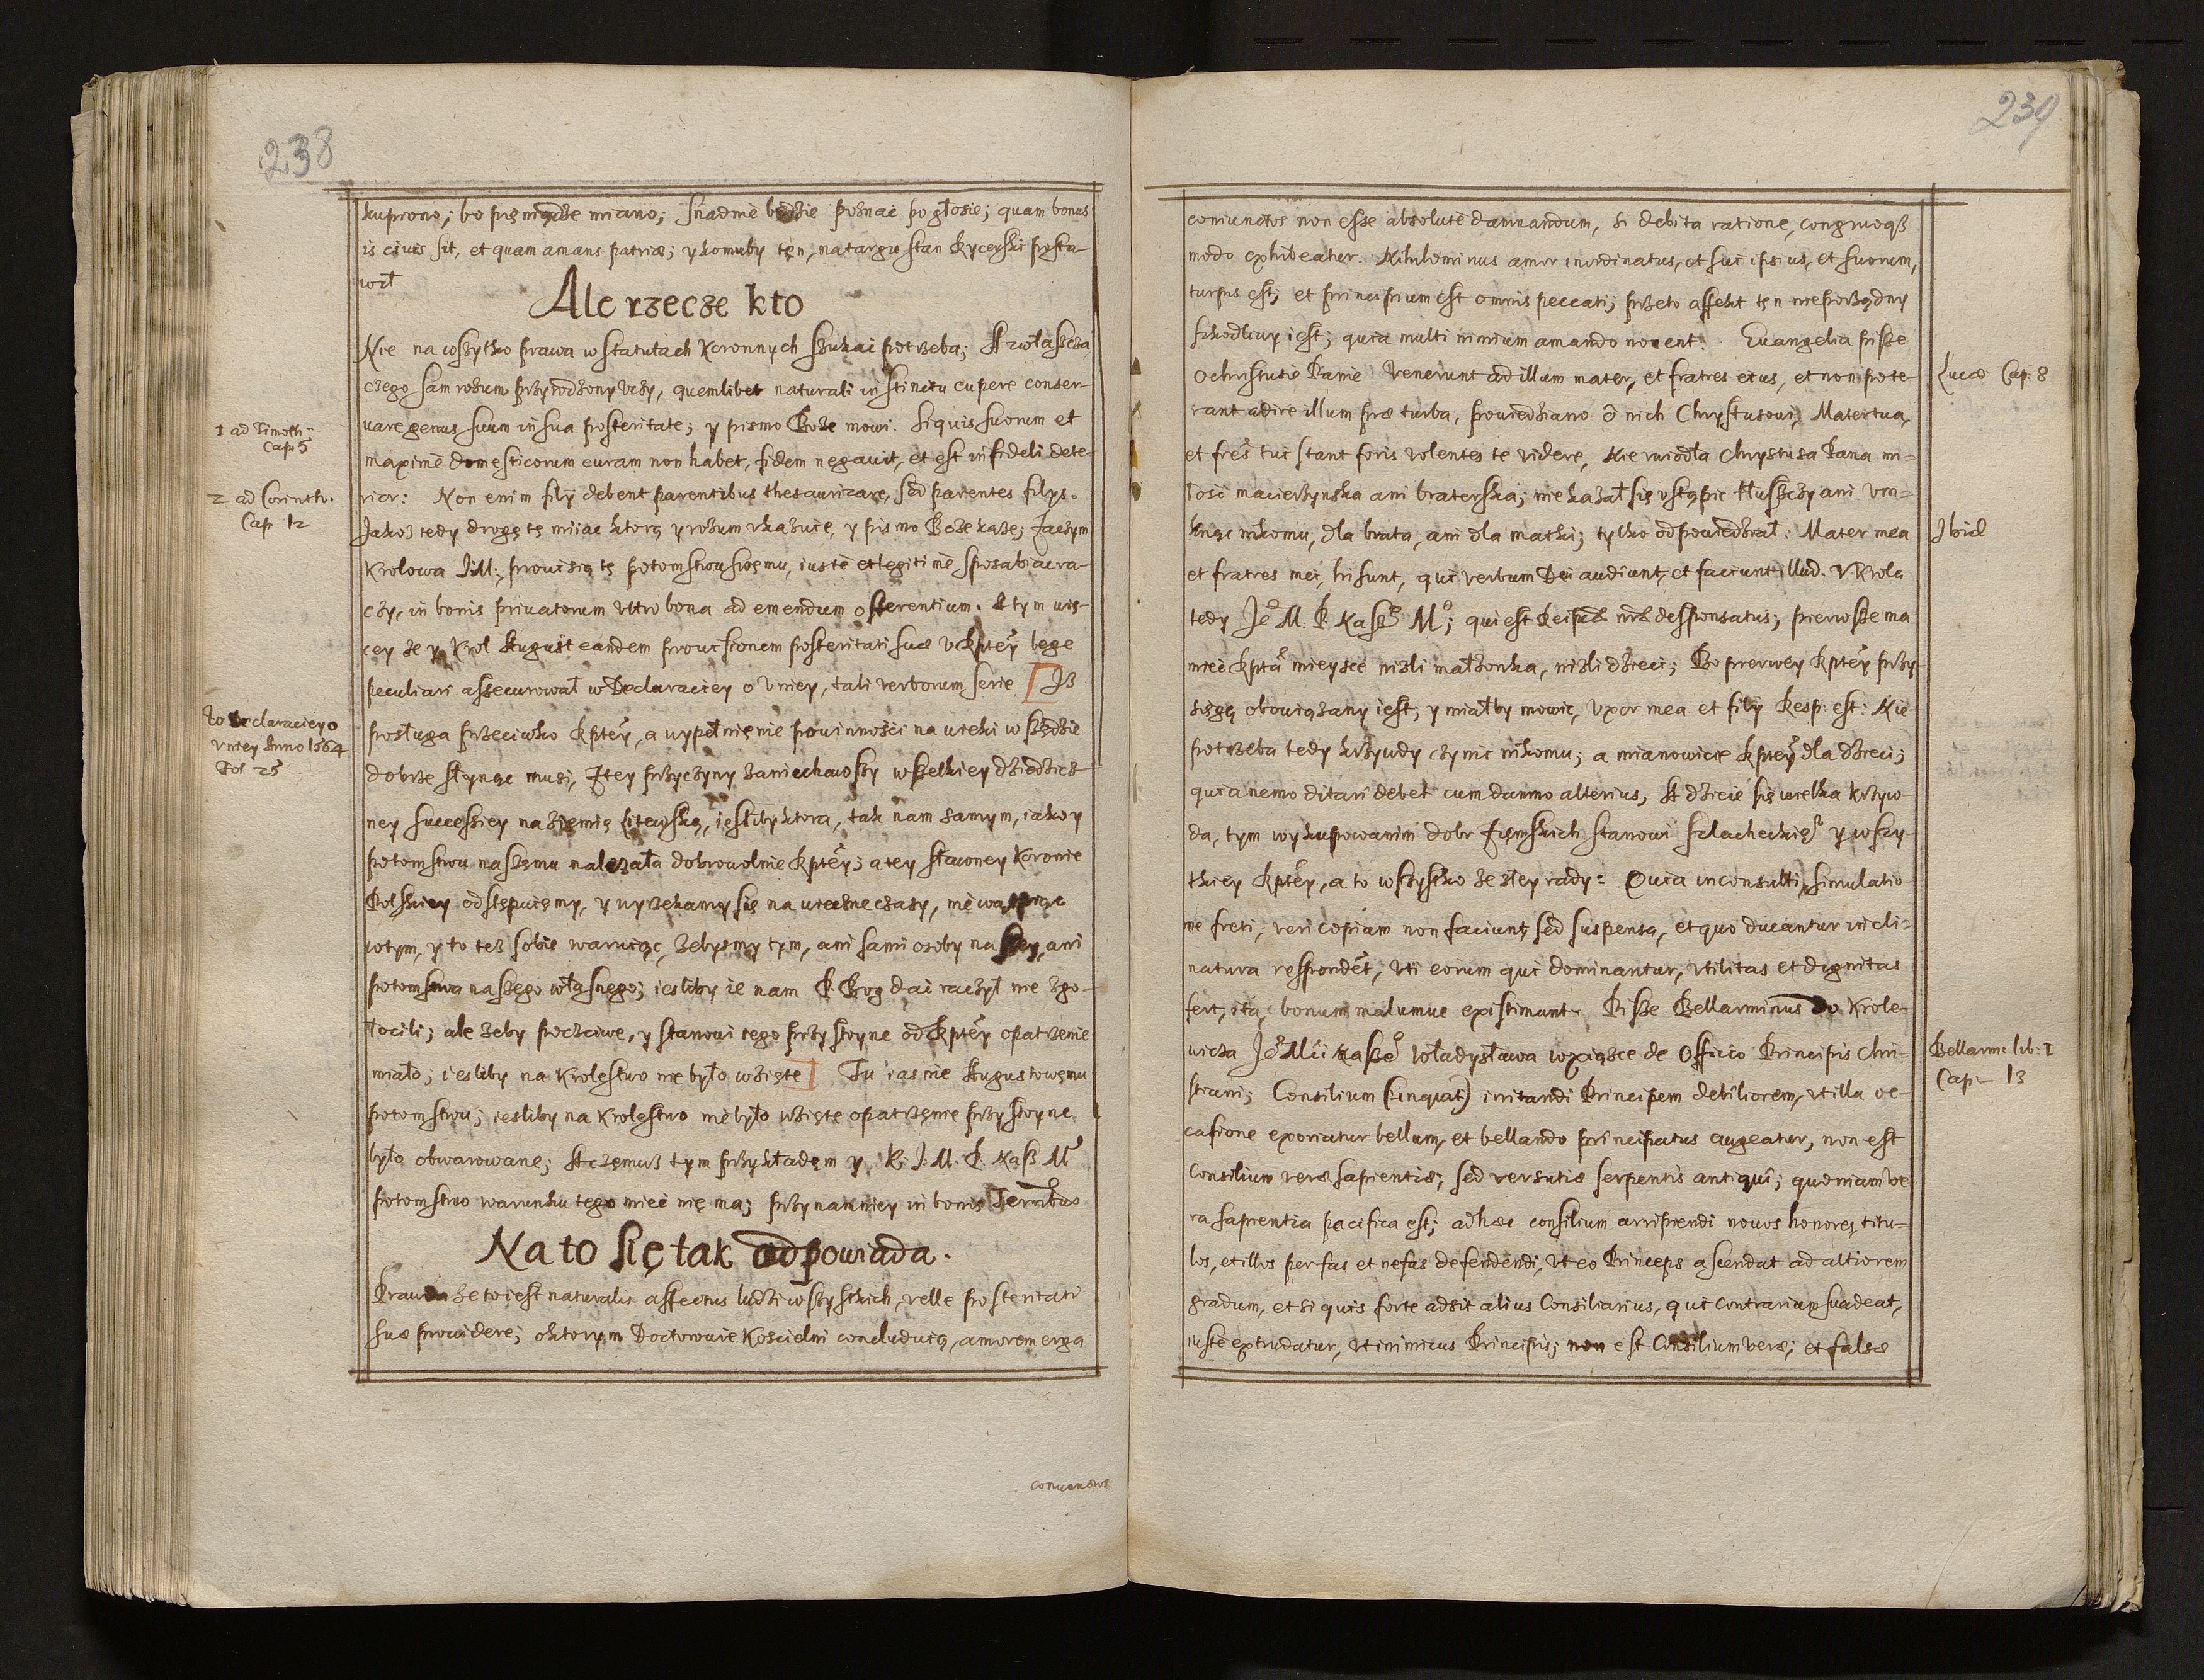 238
kupiono; bo pięniądze miano; snadnie będzie poznać po głosie; quam bonus
is ciuis sit, et quam amans patriæ; y komuby tęn, na targu stan Rycerski posta-
wił
Ale rzecze kto
Nie na wszytko prawa w statutach Koronnych szukać potrzeba; A zwłaszcza
czego sam rozum przyrodzony uczy, quemlibet naturali instinctu cupere conser-
uare genus suum in sua posteritate; y pismo Boże mowi. Si quis suorum et
1 ad Timoth:
Cap: 5
maximè domesticorum curam non habet, fidem negauit, et est infideli dete-
rior: Non enim filÿ debent parentibus thesaurizare, sed parentes filÿs.
2 ad Corinth.
Cap 12
Jakoż tedy drogę tę miiać ktorą y rozum ukazuię, y pismo Boże każę; Zaczym
Krolowa J:M:, prouisią tę potomstwu swęmu, iustè et legitimè sposabiać ra-
czy, in bonis priuatorum ultrò bona ad emendum offerentium. A tym wię-
cey że y Krol August eandem prouisionem posteritati suæ v Rptęy lege
peculiari assecurował w Declaraciey o Vniey, tali verborum serie [Iż
To Declaraciey o
Vniey Anno 1564
Fol 25
posługa przeciwko Rptęy, a wypełnięnie powinności na wieki w szędzie
dobrze słynąć musi, Z tey przyczyny zaniechawszy wszelkiey dziedzicz-
ney successiey na ziemię Litewską, iesliby ktora, tak nam samym, iako y
potomstwu naszęmu nalezała dobrowolnie Rptęy; a tey sławney Koronie
Polskiey odstępuięmy, y wyrzekamy się na wieczne czasy, nie wątpiąc
wtym, y to też sobie waruiąc, żebysmy tym, ani sami osoby naszey, ani
potomstwa naszęgo własnęgo; iesliby ie nam P. Bog dać raczył nie zgo-
łocili; ale zeby poczciwe, y stanowi tego przystoyne od Rptęy opatrzenie
miało; iesliby na Krolestwo nie było wzięte] Tu iasnie Augustowęmu
potomstwu; iesliby na Krolęstwo niè było wzięte opatrzęnie przystoyne
było obwarowane; A częmuż tym przykładęm y, K. J. M. P. Nasz Mci
potomstwo warunku tego mieć nię ma; przynamniey in bonis Terrbus
Na to się tak odpowiada.
Prawda że to iest naturalis affectus ludzi wszystkich, velle posteritati
suæ prouidere; o ktorym Doctorowie Koscielni concluduią, amorem erga
coniunctos
239
coniunctos non esse absolutè damnandum, si debita ratione, congruoqß
modo exhibeatur. Nihilominus amor inordinatus, et sui ipsius, et suorum,
turpis est; et principium est omnis peccati; przeto affekt tęn nieporządny
szkodliwy iest; quia multi nimium amando nocent. Euangelia pisze
o Chrystusie Panie Venerunt ad illum mater, et fratres eius, et non pote-
Lucæ Cap: 8
rant adire illum præ turba, powiedziano o nich Chrystusowi, Mater tua,
et frēs tui stant foris volentes te videre, Nie uwiodła Chrystusa Pana mi-
łość macierzynska ani braterska; nie kazał się ustąpić tłuszczy ani um-
knąć nikomu, dla brata, ani dla matki; tylko odpowiedział: Mater mea
Ibid
et fratres mei, hi sunt, qui verbum Dei audiunt, et faciunt illud. V Krola
tedy Jeo M. P. Naszo Mo; qui est Reipcæ nræ desponsatus; pierwsze ma
mieć Rpta mieysce niżli małżonka, niżli dzieci; Bo pierwey Rptęy przy-
sięgą obowiązany iest; y miałby mowić, Vxor mea et filÿ Resp: est: Nie
potrzeba tedy krzywdy czynić nikomu; a mianowicie Rptęy dla dzieci;
quia nemo ditari debet cum damno alterius, A dzieie się wielka krzyw-
da, tym wykupowanim dobr Zięmskich stanowi szlacheckięo y wszy-
tkiey Rptęy, a to wszystko ze złey rady: Quia inconsulti, simulatio-
ne freti, veri copiam non faciunt, sed suspensa, et quo ducantur incli-
natura respondēt, uti eorum qui dominantur, utilitas et dignitas
fert, ita, bonum malumue existimant. Pisze Bellarminus do Krole-
wicza Jeo Mci Naszeo Władysława w xiąszce de Officio Principis Chri-
Bellarm: lib: I
Cap: 13
stiani; Consilium (inquit) irritandi Principem debiliorem, ut illa oc-
casione exoriatur bellum, et bellando principatus augeatur, non est
Consilium veræ sapientiæ; sed versutiæ serpentis antiqui; quoniam ve-
ra sapientia pacifica est; ad hæc consilium arripiendi nouos honores, titu-
los, et illos per fas et nefas defendendi, Ut eo Princeps ascendat ad altiorem
gradum, et si quis forte adsit alius Consiliarius, qui contrariũ suadeat,
iustè extrudatur, ut inimicus Principis; non est Consilium veræ; et falsæ